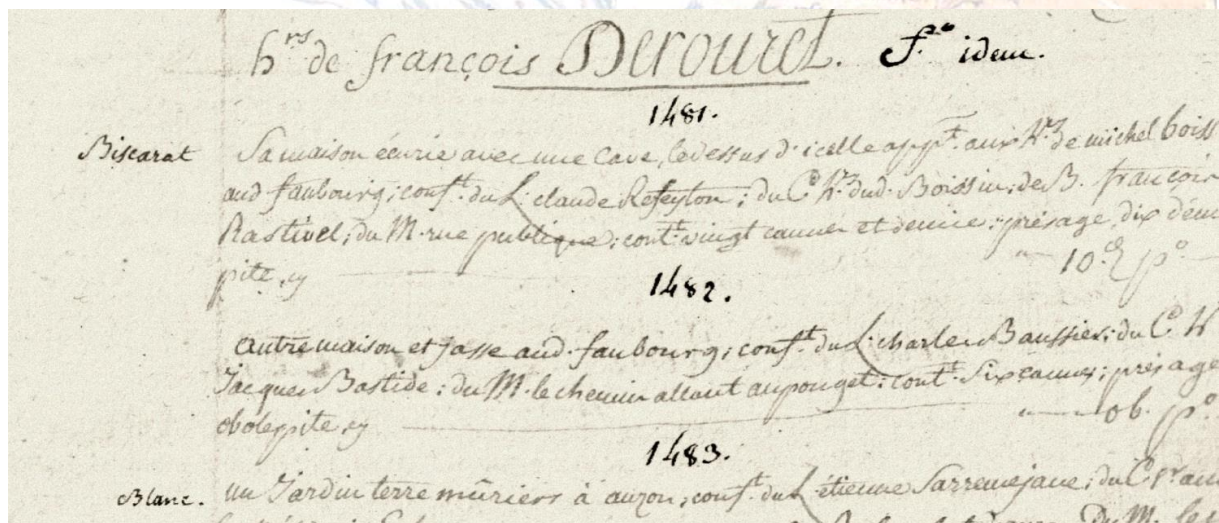 h.rs de françois Derouret. f.o idem.
1481.
Biscarat Sa maison écurie avec une cave, le dessus d'icelle app.t aux h.rs de michel boiss
aud faubourg; conf.t du L. claude Refeyton; du C. h.rs dud. Boissin; de B. françois
Rastivel; du M. rue publique; cont.t vingt cannes et demie; présage, dix den
pite, cy 10 d p.o
1482.
autre maison et jasse aud. faubourg; conf.t du L. charles Baussier; du C. h
Jacques Bastide; du M. le chemin allant au pouget; cont.t Six cannes; présage
obole pite, cy ob. p.o
1483.
Blanc. un Jardin terre mûriers à auzon; conf.t du L. étienne Sarremejane; du C. s.r